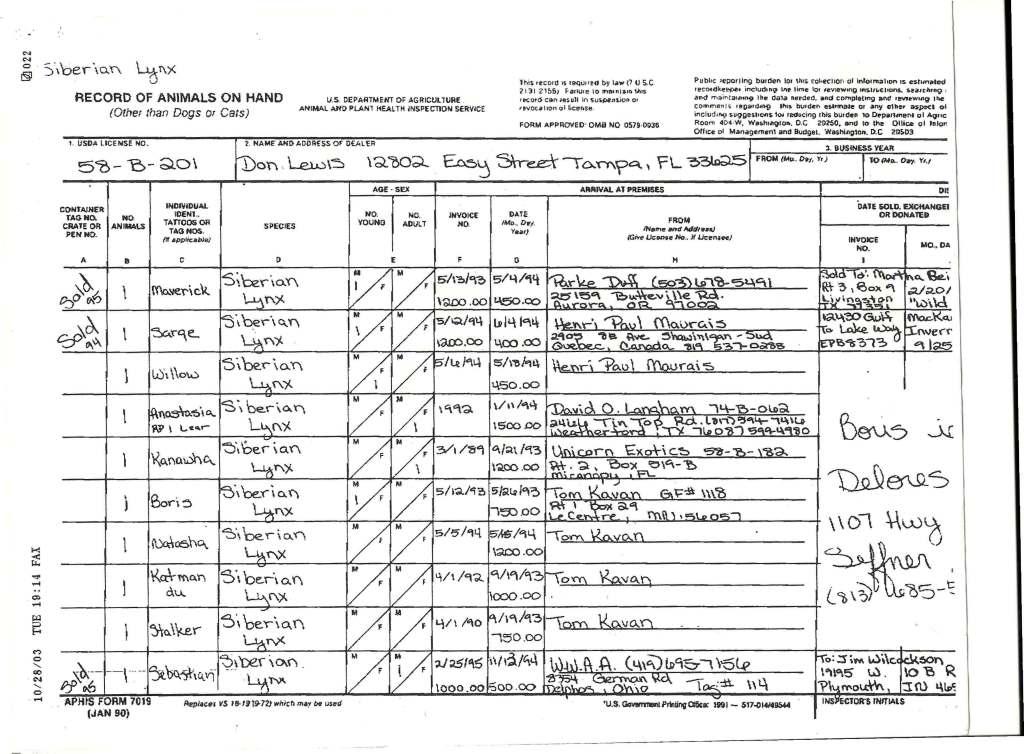 022
Siberian Lynx
RECORD OF ANIMALS ON HAND
(Other than Dogs or Cats)
U.S. DEPARTMENT OF AGRICULTURE
ANIMAL AND PLANT HEALTH INSPECTION SERVICE
This record is required by law (7 U.S.C.
2131-2156) Failure to maintain this
record can result in suspension or
revocation of license.
FORM APPROVED: OMB NO 0579-0036
Public reporting burden for this collection of information is estimated
recordkeeper including the time for reviewing instructions, searching
and maintaining the data needed, and completing and reviewing the
comments regarding this burden estimate or any other aspect of
including suggestions for reducing this burden to Department of Agric
Room 404-W, Washington, D.C 20250, and to the Office of Infor
Office of Management and Budget, Washington, D.C 20503
1. USDA LICENSE NO.
58-B-201
2. NAME AND ADDRESS OF DEALER
Don Lewis 12802 Easy Street Tampa, FL 33625
3. BUSINESS YEAR
FROM (Mo., Day, Yr.) TO (Mo., Day, Yr.)
CONTAINER TAG NO. CRATE OR PEN NO.
A
NO. ANIMALS
B
INDIVIDUAL IDENT., TATTOOS OR TAG NOS. (If applicable)
C
SPECIES
D
AGE - SEX
NO. YOUNG NO. ADULT
E
ARRIVAL AT PREMISES
INVOICE NO.
F
DATE (Mo., Day, Year)
G
FROM
(Name and Address)
(Give License No., if Licensee)
H
DIS
DATE SOLD, EXCHANGED
OR DONATED
INVOICE NO.
I
MO., DA
Sold 95 1 Maverick Siberian Lynx M 1 F M F 5/13/93 1200.00 5/4/94 450.00 Parke Duff (503) 678-5491
25159 Butteville Rd.
Aurora, OR 97002
Sold To: Martha Bei
Rt 3, Box 9 2/20/
Livingston "Wild
TX 77351
Sold 94 1 Sarge Siberian Lynx M 1 F M F 5/12/94 1200.00 6/4/94 400.00 Henri Paul Maurais
2905 8E Ave Shawinigan-Sud
Quebec, Canada 819 537-0288
12430 Gulf MacKa
To Lake Way Inverr
EPB8373 9/25
1 Willow Siberian Lynx M F 1 M F 5/6/94 5/18/94 450.00 Henri Paul Maurais
1 Anastasia Siberian Lynx M F M F 1 1992 1/11/94 1500.00 David O. Langham 74-B-062
2466 Tin Top Rd. (817) 594-7416
Weatherford, TX 76087 599-4980
1 Kanawha Siberian Lynx M F M F 1 3/1/89 9/21/93 1200.00 Unicorn Exotics 58-B-182
Rt. 2, Box 519-B
Micanopy, FL
1 Boris Siberian Lynx M 1 F M F 5/12/93 5/26/93 750.00 Tom Kavan GF# 1118
Rt 1 Box 29
LeCentre, MN 56057
1 Natasha Siberian Lynx M F M F 5/5/94 1200.00 Tom Kavan
1 Katman du Siberian Lynx M F M F 4/1/92 9/19/93 1000.00 Tom Kavan
1 Stalker Siberian Lynx M F M F 4/1/90 9/19/93 750.00 Tom Kavan
Boris i
Delores
1107 Hwy
Seffner
(813) 685-
Sold 95 1 Sebastian Siberian Lynx M F M 1 F 2/25/95 1000.00 11/13/94 500.00 W.W.A.A. (419) 695 7156
8754 German Rd
Delphos, Ohio Tag # 114
To: Jim Wilcockson
19195 W. 10 B R
Plymouth, IN 465
APHIS FORM 7019
(JAN 90)
Replaces VS 18-19 (9-72) which may be used
*U.S. Government Printing Office: 1991 - 517-014/49544
INSPECTOR'S INITIALS
10/28/03 TUE 19:14 FAX